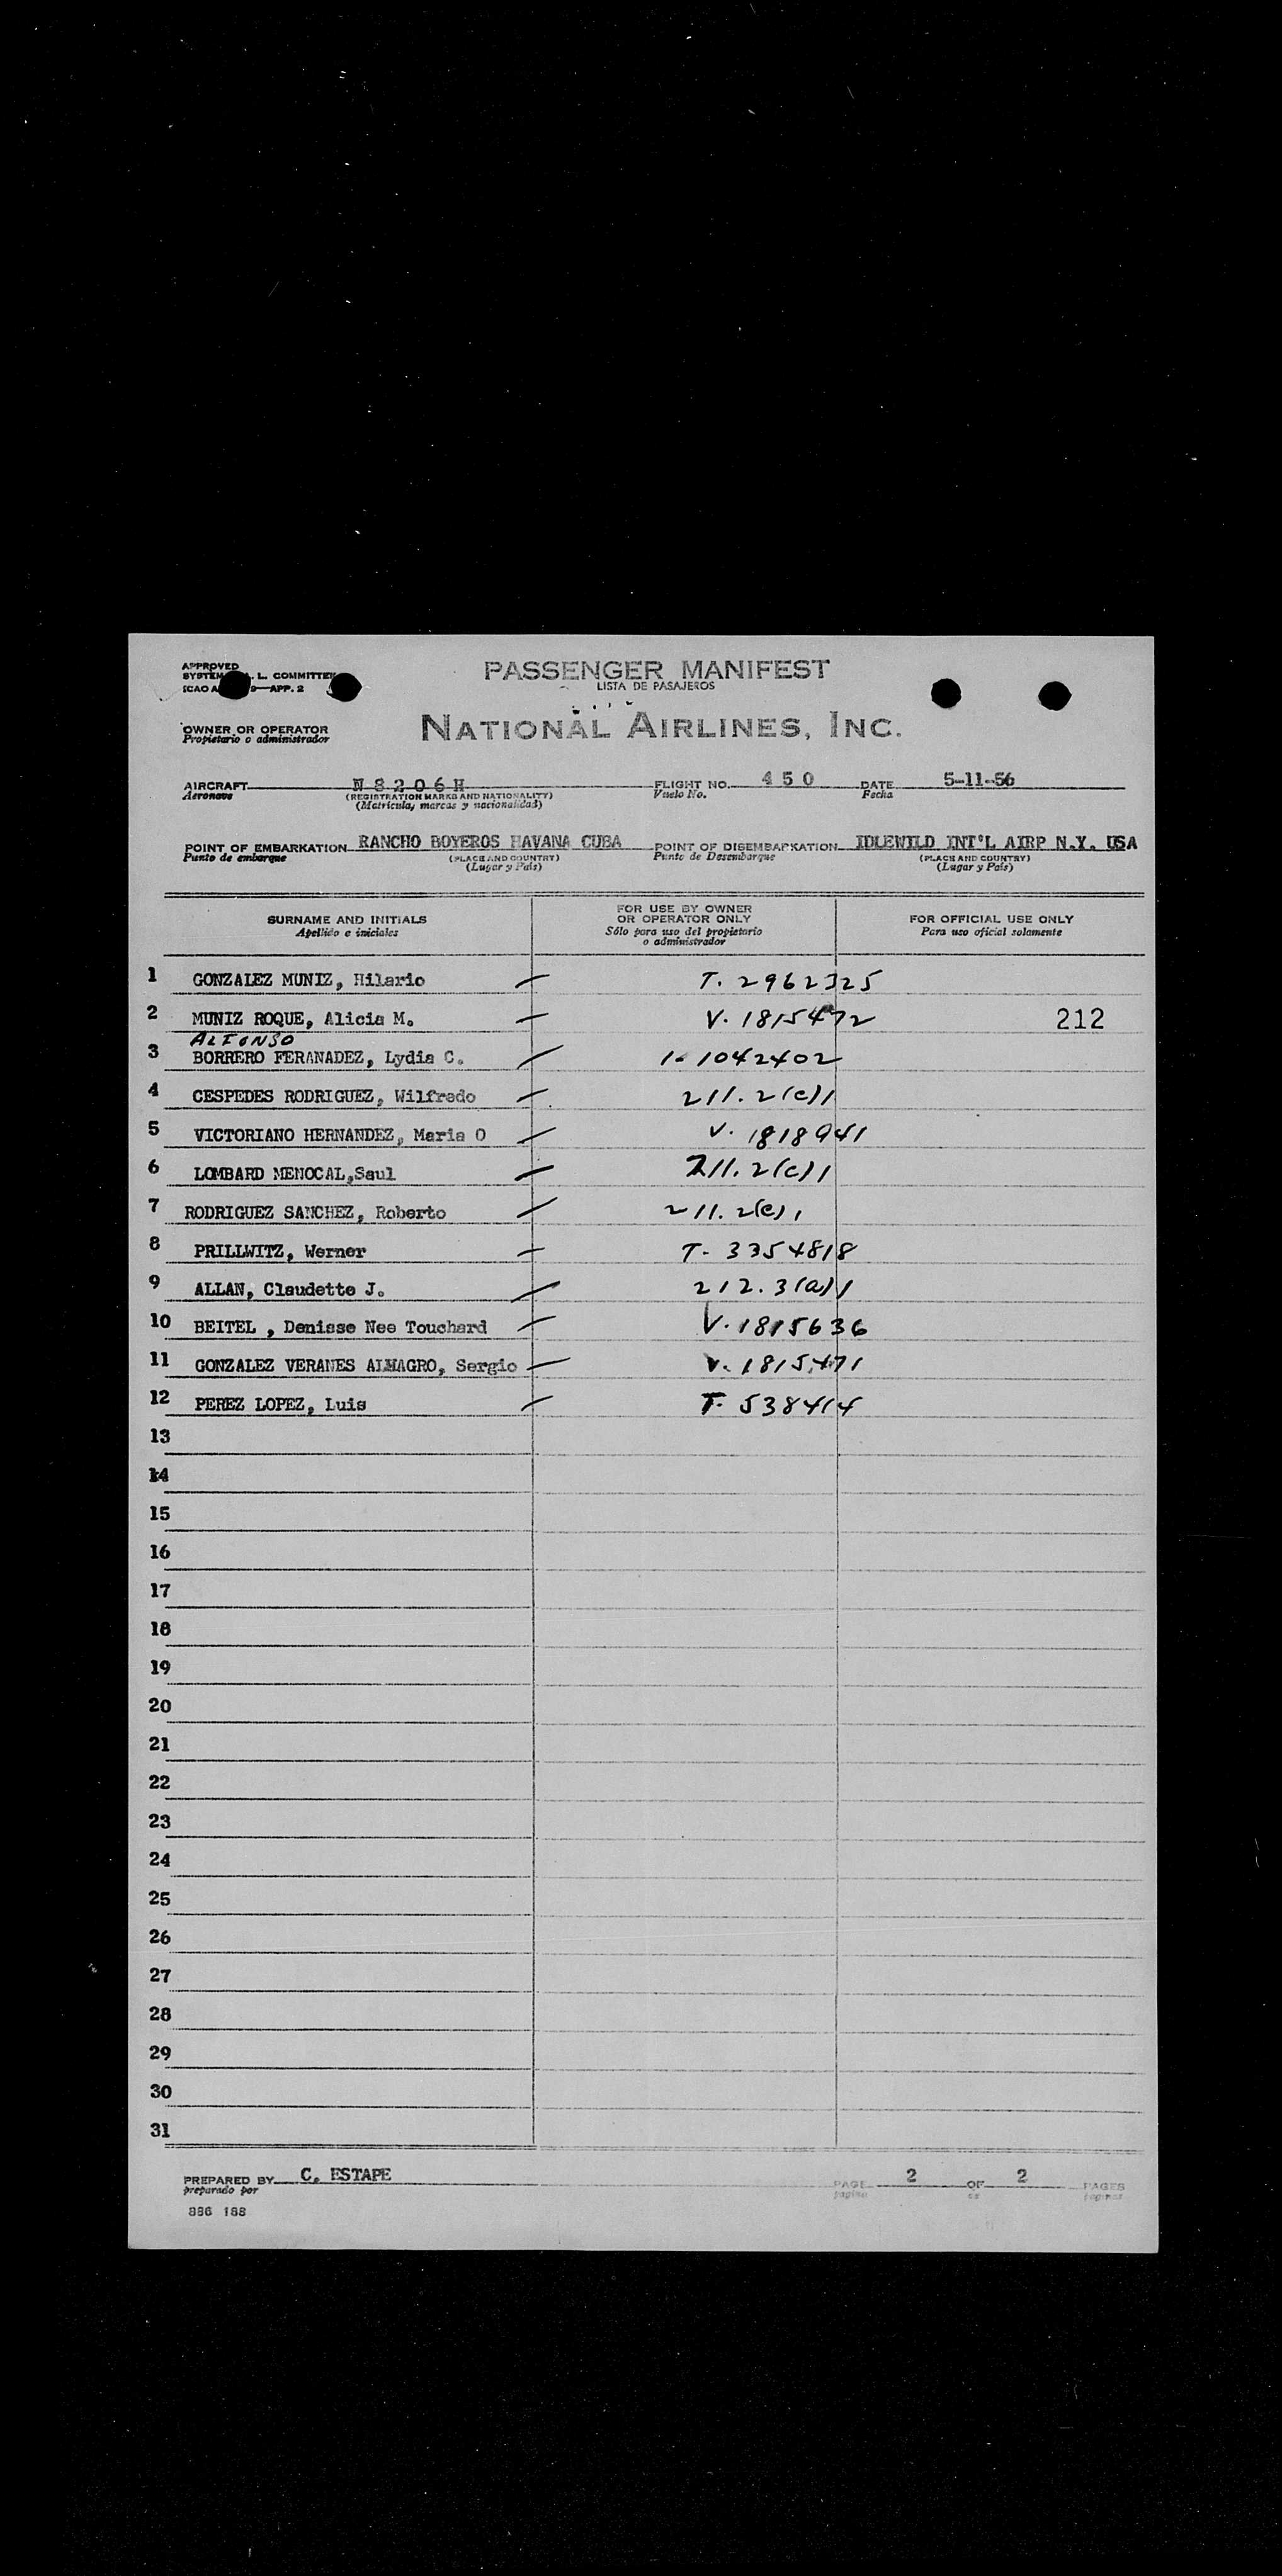 APPROVED
PASSENGER MANIFEST
SYSTEM L. COMMITTEE
LISTA DE PASAJEROS
ICAO A 9—APP. 2
OWNER OR OPERATOR
NATIONAL AIRLINES, INC.
Propietario o administrador
AIRCRAFT N8206H FLIGHT NO. 450 DATE 5-11-56
Aeronave (REGISTRATION MARKS AND NATIONALITY) Vuelo No. Fecha
(Matricula, marcas y nacionalidad)
POINT OF EMBARKATION RANCHO BOYEROS HAVANA CUBA POINT OF DISEMBARKATION IDLEWILD INT'L AIRP N.Y. USA
Punto de embarque (PLACE AND COUNTRY) Punto de Desembarque (PLACE AND COUNTRY)
(Lugar y País) (Lugar y País)
SURNAME AND INITIALS FOR USE BY OWNER OR OPERATOR ONLY FOR OFFICIAL USE ONLY
Apellido e iniciales Sólo para uso del propietario o administrador Para uso oficial solamente
1 GONZALEZ MUNIZ, Hilario — T. 2962325
2 MUNIZ ROQUE, Alicia M. — V. 1815472 212
ALFONSO
3 BORRERO FERANADEZ, Lydia C. — 1-1042402
4 CESPEDES RODRIGUEZ, Wilfredo — 211.2(c)1
5 VICTORIANO HERNANDEZ, Maria O — V. 1818941
6 LOMBARD MENOCAL,Saul — 211.2(c)1
7 RODRIGUEZ SANCHEZ, Roberto — 211.2(c)1
8 PRILLWITZ, Werner — T- 3354818
9 ALLAN, Claudette J. — 212.3(a)1
10 BEITEL , Denisse Nee Touchard — V.1815636
11 GONZALEZ VERANES ALMAGRO, Sergio — V. 1815471
12 PEREZ LOPEZ, Luis — T- 538414
13
14
15
16
17
18
19
20
21
22
23
24
25
26
27
28
29
30
31
PREPARED BY C. ESTAPE PAGE 2 OF 2 PAGES
preparado por pagina de paginas
886 188